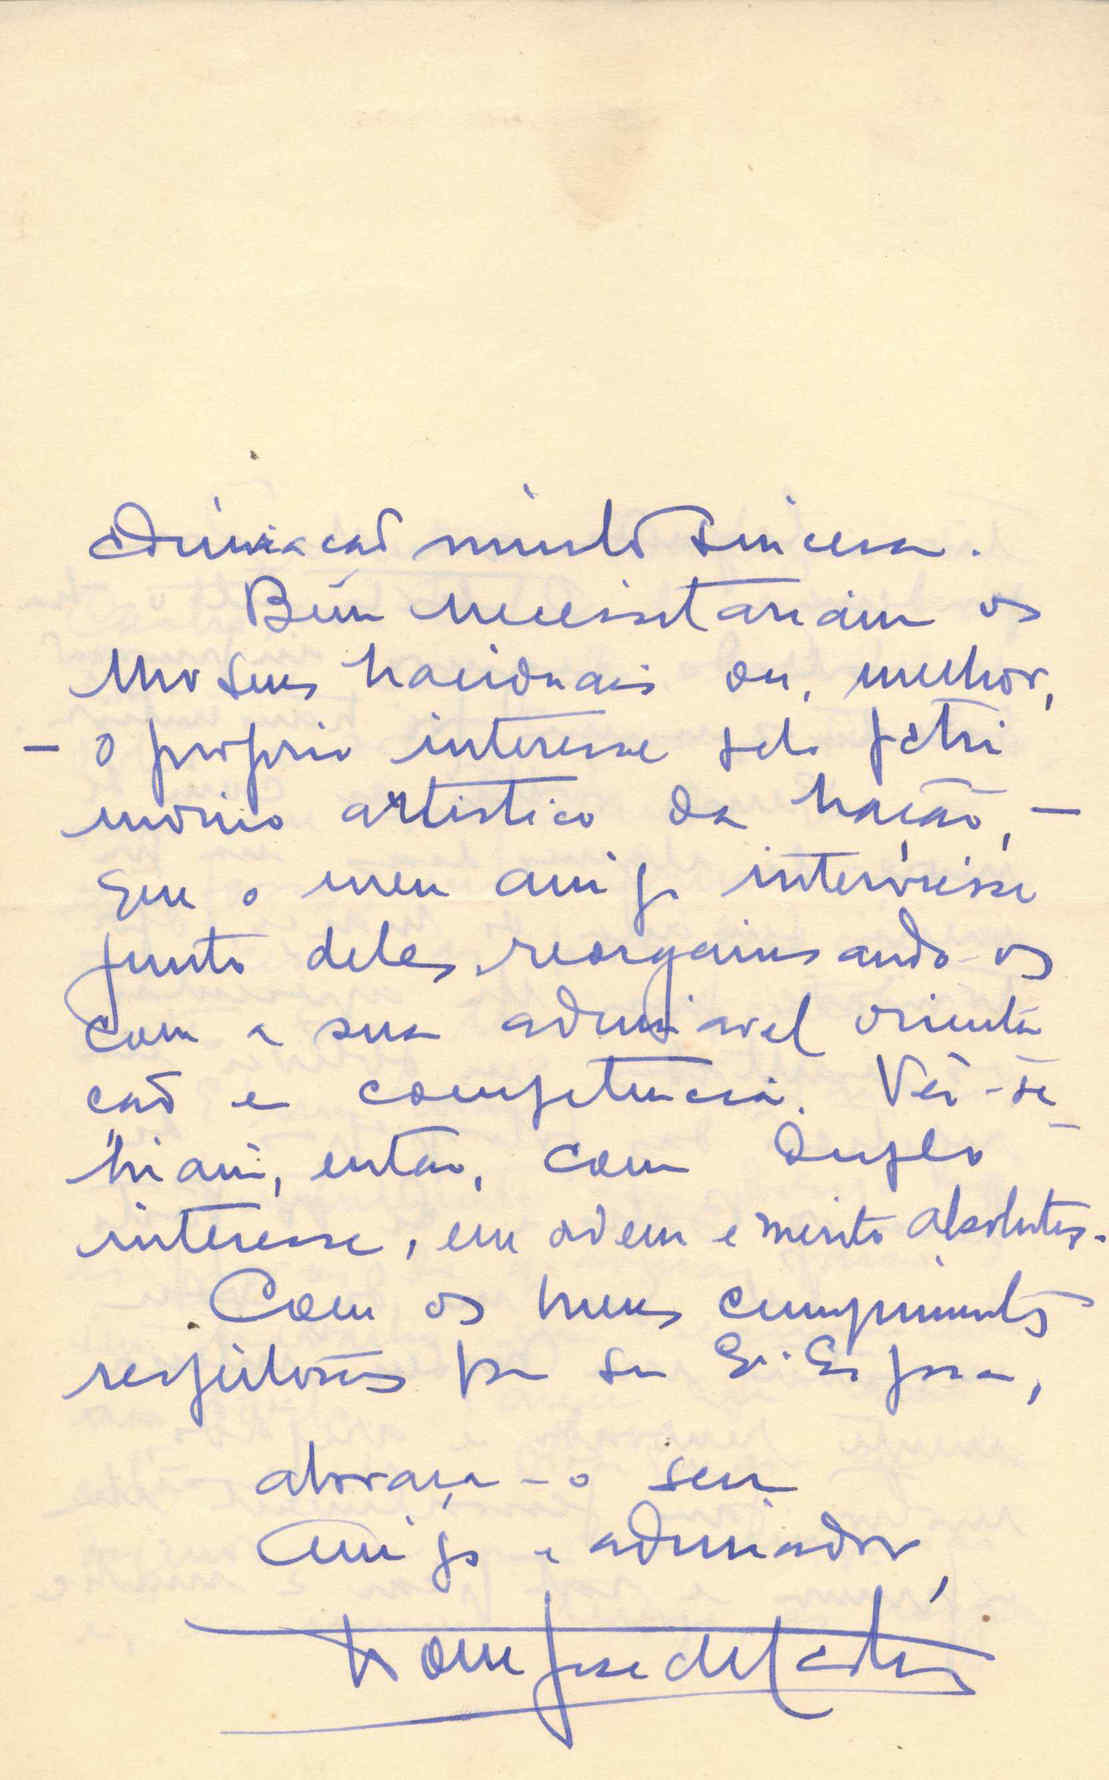 admiração muito sincera.
Bem necessitariam os
Museus Nacionais ou, melhor,
– o proprio interesse pelo patri
monio artistico da Nação, –
que o meu amigo interviesse
junto deles, reorganisando-os
com a sua admiravel orienta
ção e competencia. Vêr-se-
hiam, então, com duplo
interesse, em ordem e merito absolutos.
Com os meus cumprimentos
respeitosos pra sua Exª. Esposa,
abraça-o seu
amigo e admirador,